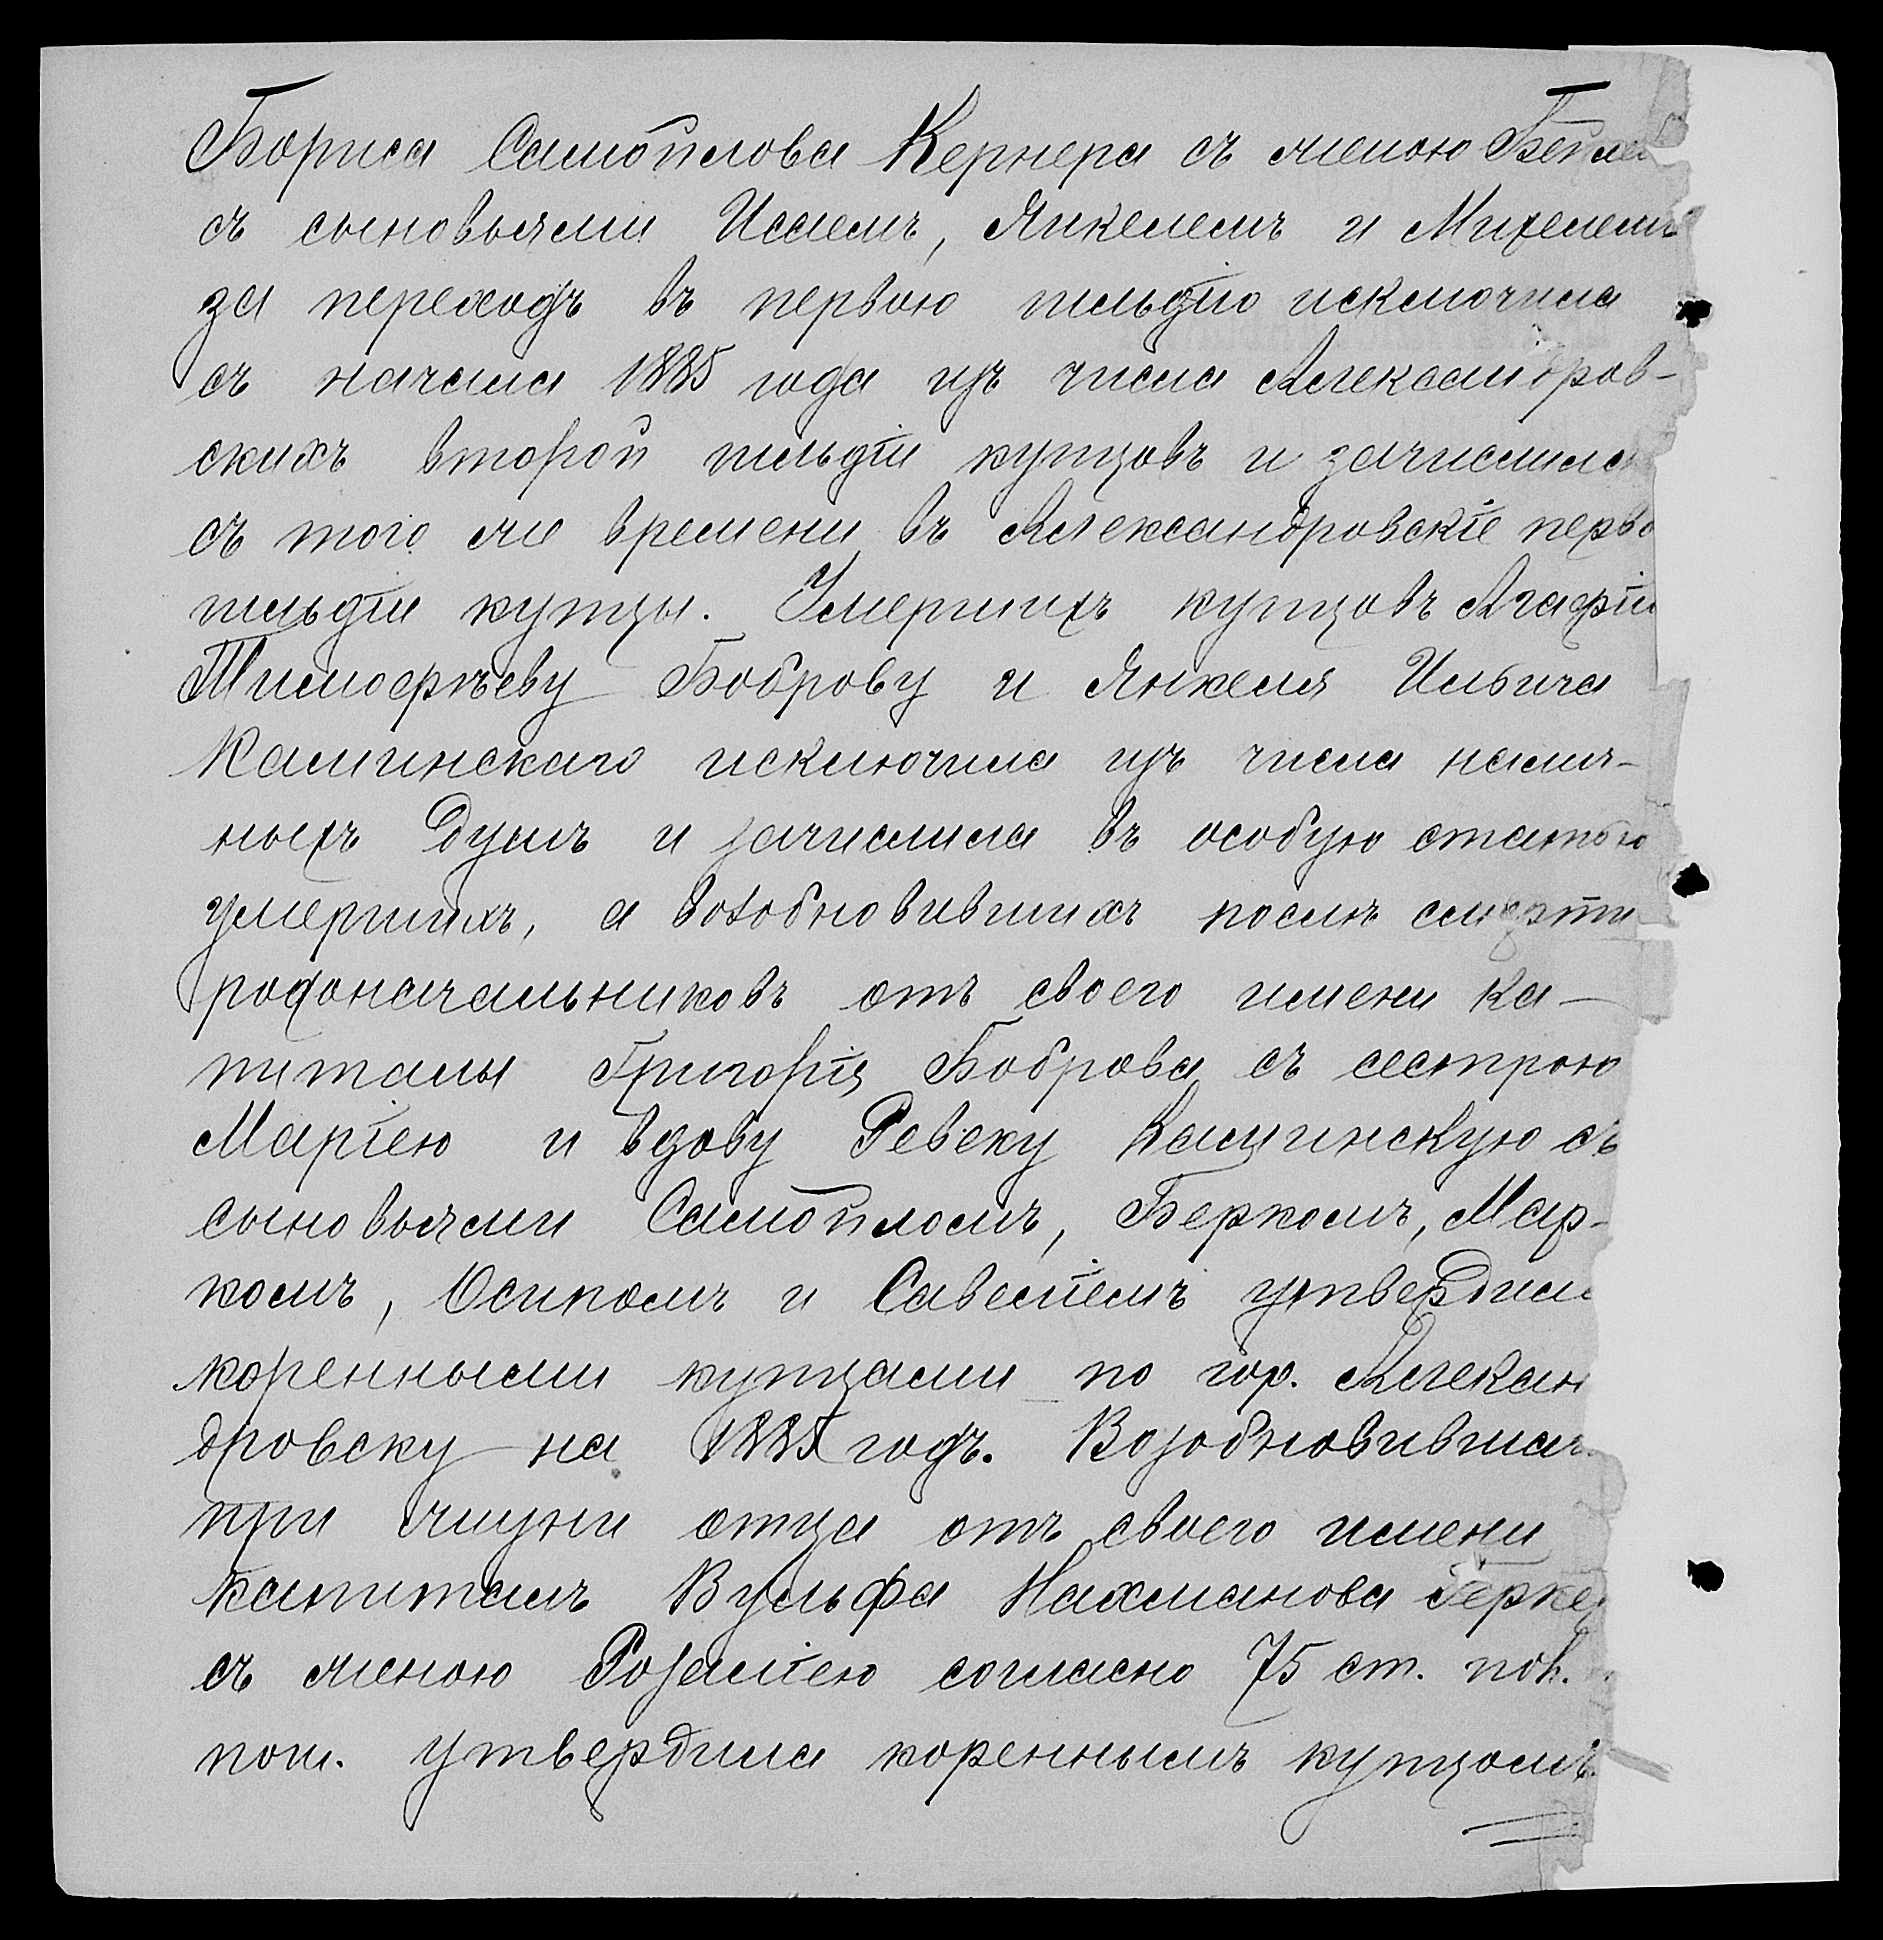 Бориса Самойлова Кернера съ женою Бейлею
съ сыновьями Исаемъ, Янкелемъ и Михелемъ
за переходъ въ первою гильдію исключила
съ начала 1885 года изъ числа Александров-
скихъ второй гильдіи купцовъ и зачислила
съ того же времени въ Александровскіе перво
гильдіи купцы. Умершихъ купцовъ Агафію
Тимофѣеву Боброву и Янкеля Ильича
Камминскаго исключила изъ числа налич-
ныхъ душъ и зачислила въ особую статью
умершихъ, а возобновившихъ послѣ смерти
родоначальниковъ отъ своего имени ка-
питалы Григорія Боброва съ сестрою
Маріею и вдову Ревеку Каминскую съ
сыновьями Самойломъ, Беркомъ, Мар-
комъ, Осипомъ и Савеліемъ утвердила
коренными купцами по гор. Алексан
дровску на 1885 годъ. Возобновившаго
при жизни отца отъ своего имени
капиталъ Вульфа Нахманова
съ женою Розаліею согласно 75 ст. пол.
пош. утвердила кореннымъ купцомъ.